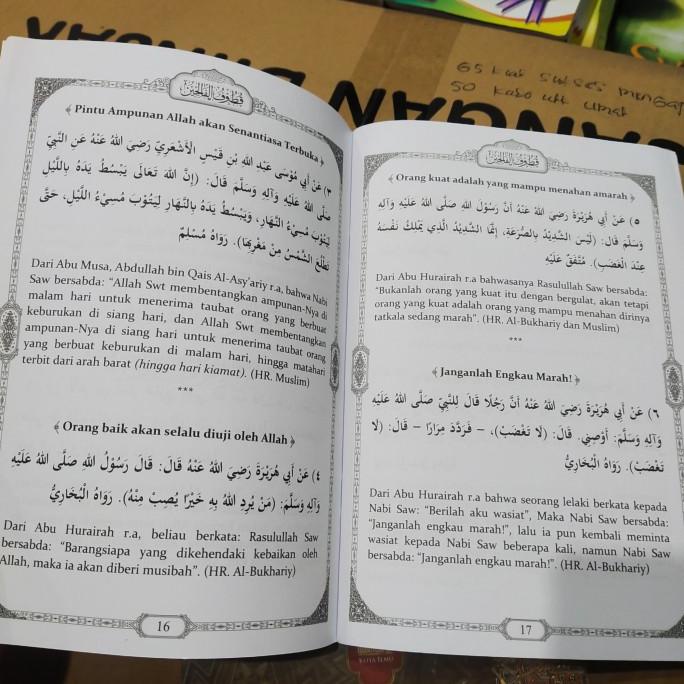 قطوف الفالحين
﴾ Pintu Ampunan Allah akan Senantiasa Terbuka ﴿
٣) عَنْ أَبِي مُوْسَى عَبْدِ اللهِ بْنِ قَيْسٍ الْأَشْعَرِيِّ رَضِيَ اللهُ عَنْهُ عَنِ النَّبِيِّ
صَلَّى اللهُ عَلَيْهِ وَآلِهِ وَسَلَّمَ قَالَ: (إِنَّ اللهَ تَعَالَى يَبْسُطُ يَدَهُ بِاللَّيْلِ
لِيَتُوْبَ مُسِيْءُ النَّهَارِ، وَيَبْسُطُ يَدَهُ بِالنَّهَارِ لِيَتُوْبَ مُسِيْءُ اللَّيْلِ، حَتَّى
تَطْلُعَ الشَّمْسُ مِنْ مَغْرِبِهَا). رَوَاهُ مُسْلِمٌ
Dari Abu Musa, Abdullah bin Qais Al-Asy'ariy r.a, bahwa Nabi
Saw bersabda: “Allah Swt membentangkan ampunan-Nya di
malam hari untuk menerima taubat orang yang berbuat
keburukan di siang hari, dan Allah Swt membentangkan
ampunan-Nya di siang hari untuk menerima taubat orang
yang berbuat keburukan di malam hari, hingga matahari
terbit dari arah barat (hingga hari kiamat). (HR. Muslim)
***
﴾ Orang baik akan selalu diuji oleh Allah ﴿
٤) عَنْ أَبِي هُرَيْرَةَ رَضِيَ اللهُ عَنْهُ قَالَ: قَالَ رَسُوْلُ اللهِ صَلَّى اللهُ عَلَيْهِ
وَآلِهِ وَسَلَّمَ: (مَنْ يُرِدِ اللهُ بِهِ خَيْرًا يُصِبْ مِنْهُ). رَوَاهُ الْبُخَارِيُّ
Dari Abu Hurairah r.a, beliau berkata: Rasulullah Saw
bersabda: “Barangsiapa yang dikehendaki kebaikan oleh
Allah, maka ia akan diberi musibah”. (HR. Al-Bukhariy)
16
قطوف الفالحين
﴾ Orang kuat adalah yang mampu menahan amarah ﴿
٥) عَنْ أَبِي هُرَيْرَةَ رَضِيَ اللهُ عَنْهُ أَنَّ رَسُوْلَ اللهِ صَلَّى اللهُ عَلَيْهِ وَآلِهِ
وَسَلَّمَ قَالَ: (لَيْسَ الشَّدِيْدُ بِالصُّرَعَةِ، إِنَّمَا الشَّدِيْدُ الَّذِي يَمْلِكُ نَفْسَهُ
عِنْدَ الْغَضَبِ). مُتَّفَقٌ عَلَيْهِ
Dari Abu Hurairah r.a bahwasanya Rasulullah Saw bersabda:
“Bukanlah orang yang kuat itu dengan bergulat, akan tetapi
orang yang kuat adalah orang yang mampu menahan dirinya
tatkala sedang marah”. (HR. Al-Bukhariy dan Muslim)
***
﴾ Janganlah Engkau Marah! ﴿
٦) عَنْ أَبِي هُرَيْرَةَ رَضِيَ اللهُ عَنْهُ أَنَّ رَجُلًا قَالَ لِلنَّبِيِّ صَلَّى اللهُ عَلَيْهِ
وَآلِهِ وَسَلَّمَ: أَوْصِنِي. قَالَ: (لَا تَغْضَبْ)، – فَرَدَّدَ مِرَارًا – قَالَ: (لَا
تَغْضَبْ). رَوَاهُ الْبُخَارِيُّ
Dari Abu Hurairah r.a bahwa seorang lelaki berkata kepada
Nabi Saw: “Berilah aku wasiat”, Maka Nabi Saw bersabda:
“Janganlah engkau marah!”, lalu ia pun kembali meminta
wasiat kepada Nabi Saw beberapa kali, namun Nabi Saw
bersabda: “Janganlah engkau marah!”. (HR. Al-Bukhariy)
17
KOTA ILMU